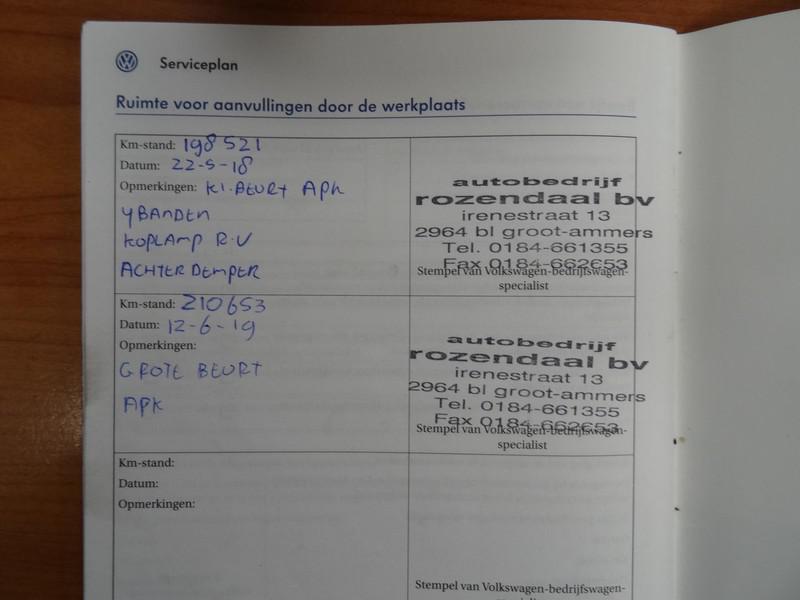 Serviceplan
Ruimte voor aanvullingen door de werkplaats
Km-stand: 198521
Datum: 22-5-18
Opmerkingen: Kl. BEURT APK
4 BANDEN
KOPLAMP R.V
ACHTER DEMPER
autobedrijf
rozendaal bv
irenestraat 13
2964 bl groot-ammers
Tel. 0184-661355
Fax 0184-662653
Stempel van Volkswagen-bedrijfswagen-
specialist
Km-stand: 210653
Datum: 12-6-19
Opmerkingen:
GROTE BEURT
APK
autobedrijf
rozendaal bv
irenestraat 13
2964 bl groot-ammers
Tel. 0184-661355
Fax 0184-662653
Stempel van Volkswagen-bedrijfswagen-
specialist
Km-stand:
Datum:
Opmerkingen:
Stempel van Volkswagen-bedrijfswagen-